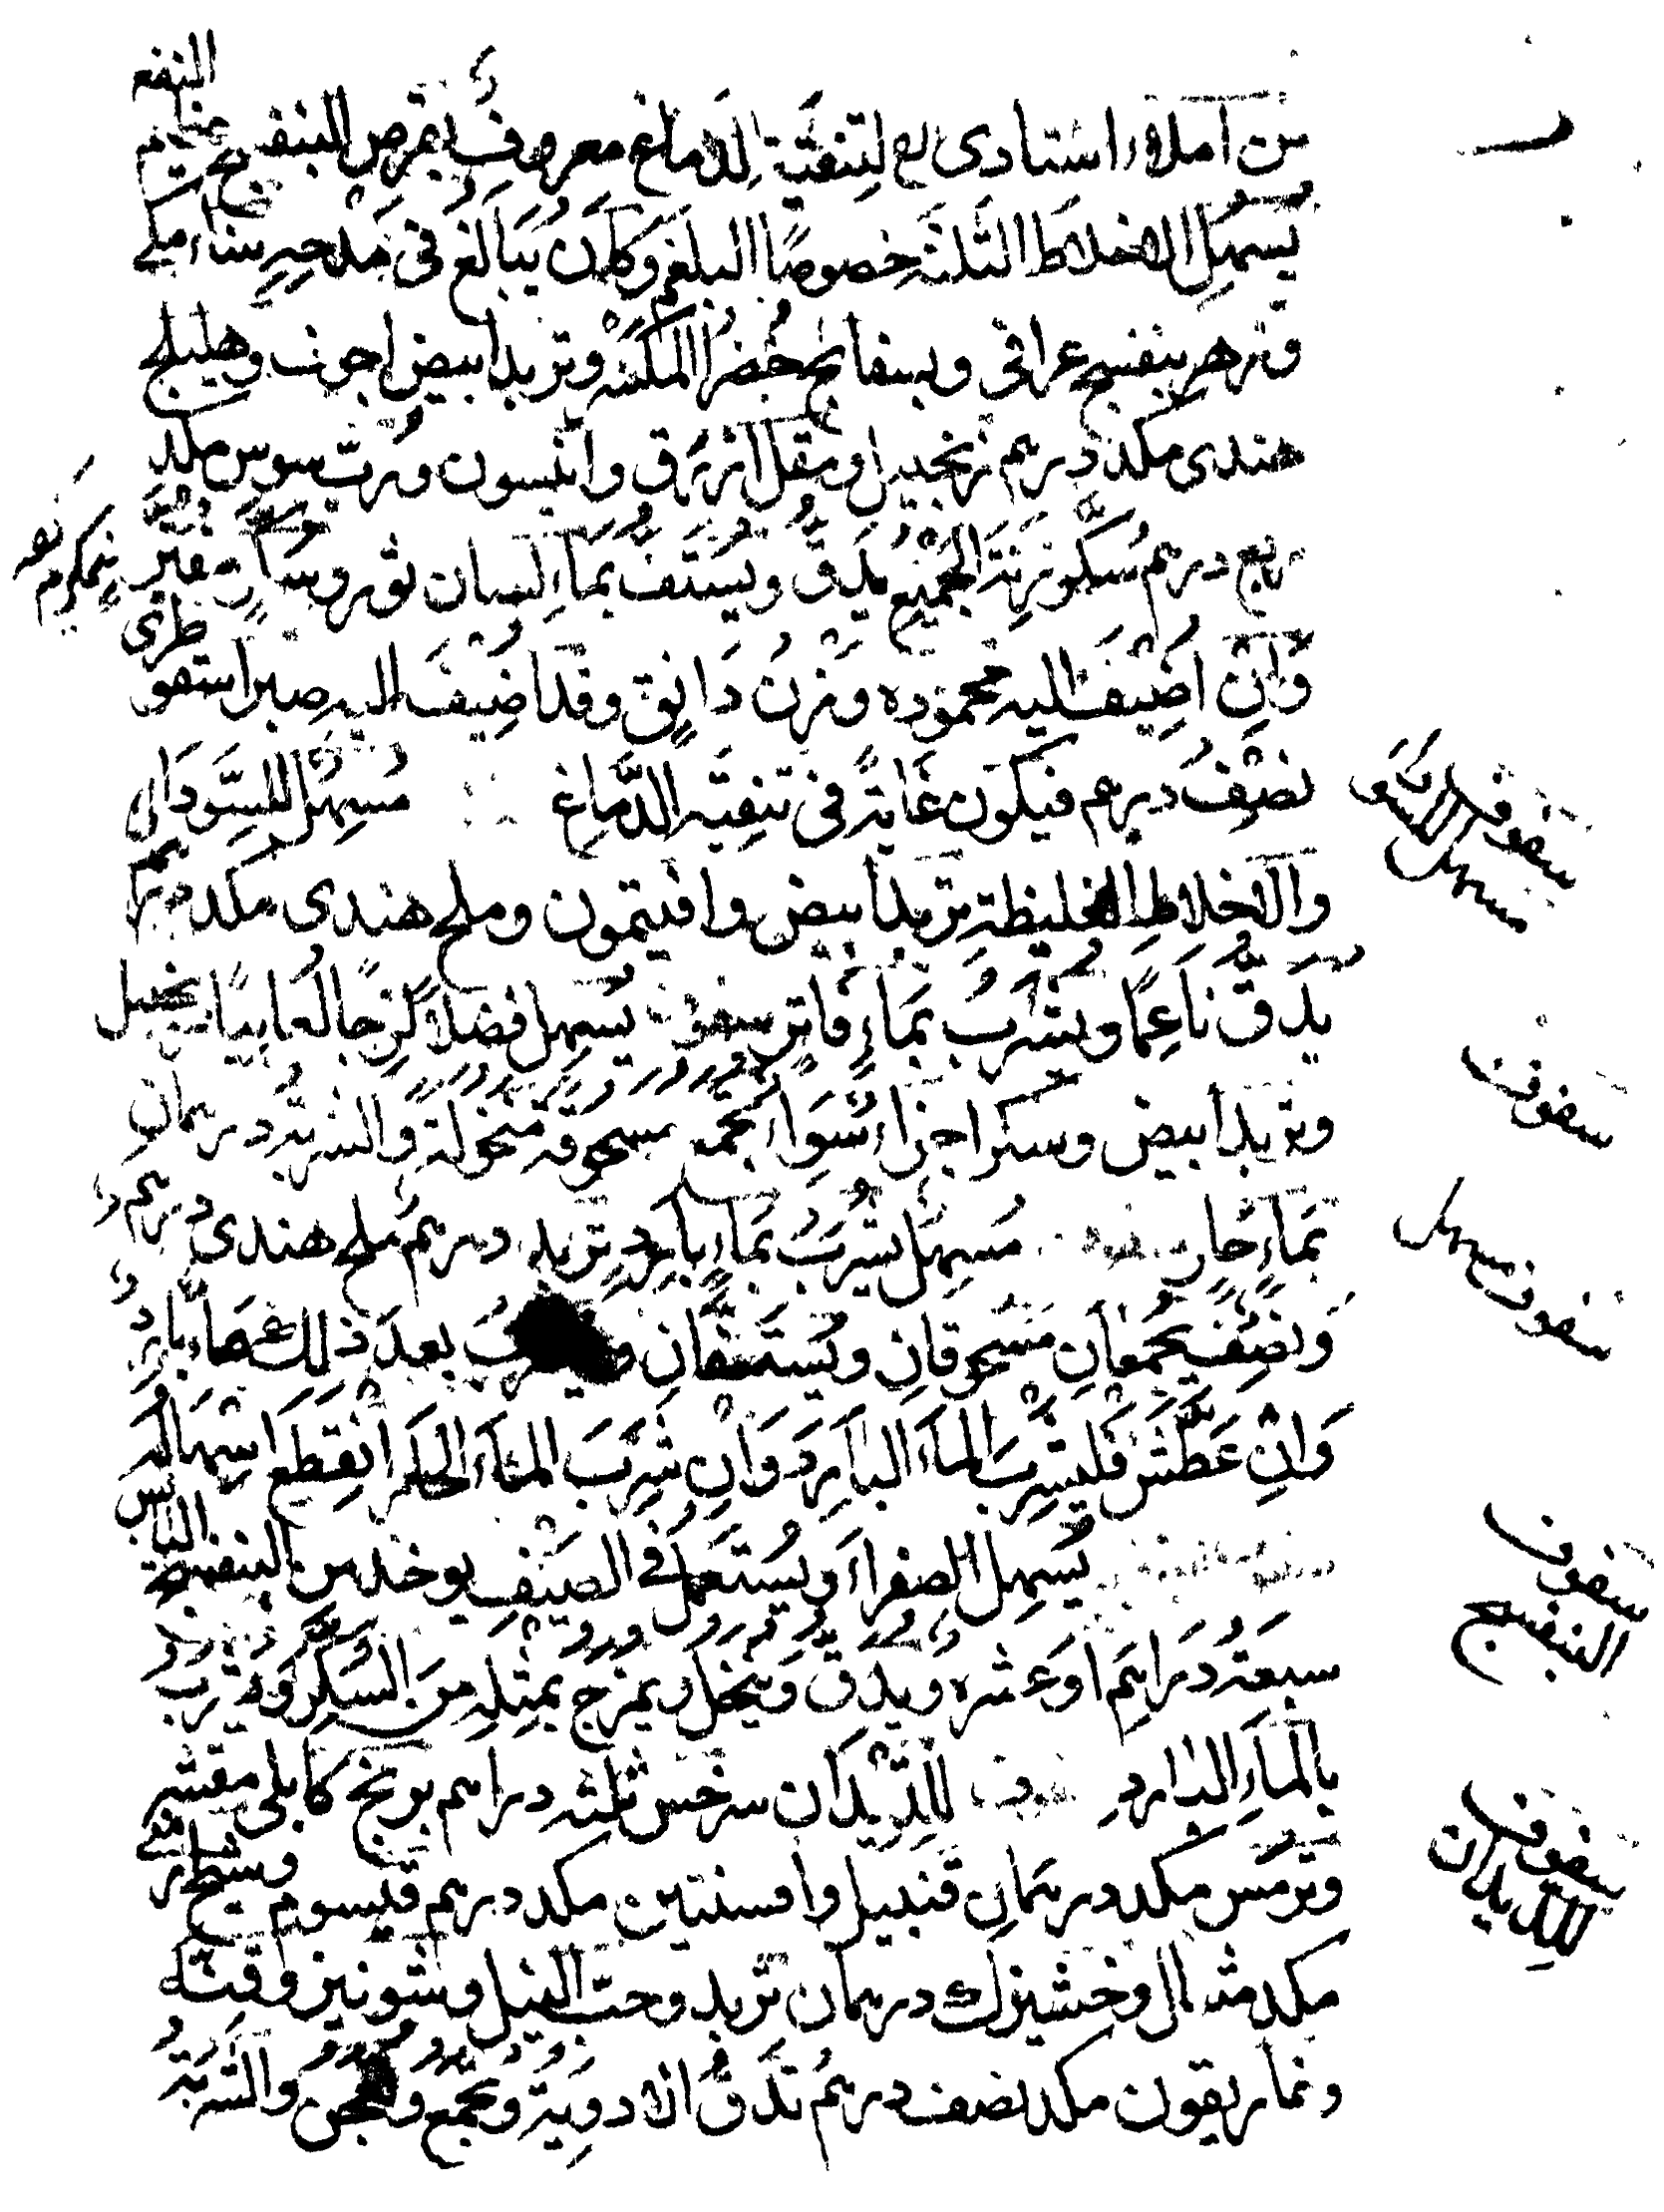 من املاء استادى لتنقية الدماغ معروف بقرص البنفسج عظيم النفع
يسهل الاخلاط الثلثة خصوصًا البلغم وكان يبالغ في مدحه سناء مكي
وزهر بنفسج عراقى وبسفايج خضر المكسر وتربد ابيض اجوف وهليلج
هندى مكد درهم زنجبيل ومقل ازرق وانيسون ورب سوس مكد
ربع درهم سكر زنة الجميع يدق ويستف بماء لسان ثور
وان اضيف اليه محموده وزن دانق وقد اضيف اليه صبر اسقوطرى
نصف درهم فيكون غاية في تنقية الدماغ مسهل للسوداء
والاخلاط الغليظة تربد ابيض وافيتمون وملح هندى مكد درهم
يدق ناعمًا ويشرب بماء فاتر سفوف يسهل فضلا لزجا لعابيًا زنجبيل
وتربد ابيض وسكر اجزاء سواء تجمع مسحوقة منخولة والشربة درهمان
بماء حار مسهل يشرب بماء بارد تربد درهم ملح هندى درهم
ونصف يجمعان مسحوقان ويستفان بعد ذلك بارد
وان عطش فليشرب الماء البارد وان شرب الماء الحار انقطع اسهاله
يسهل الصفراء ويستعمل في الصيف يوخذ من البنفسج اليابس
سبعة دراهم او عشره ويدق وينخل ويمزج بمثله من السكر ويشرب
بالماء البارد للديدان سرخس ثلثه دراهم برنج كابلى مقشر
وترمس مكد درهمان قنبيل وافسنتين مكد درهم قيسوم وشيح
مكد مثقال وخشيزك درهمان تربد وحب النيل وشونيز وقنه
وغاريقون مكد نصف درهم تدق الادوية وتجمع وتعجن والشربة
سفوف
مسهل
سفوف
سفوف مسهل
سفوف
البنفسج
سفوف
للديدان